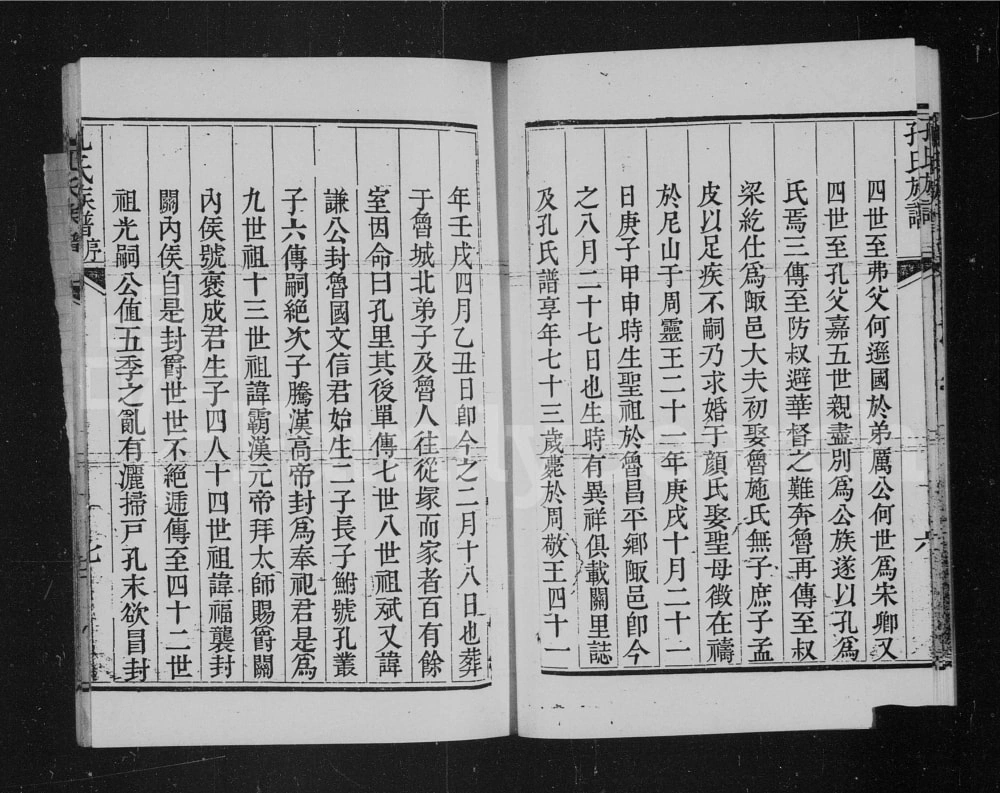 孔氏族譜
四世至弗父何遜國於弟厲公何世爲宋卿又
四世至孔父嘉五世親盡別爲公族遂以孔爲
氏焉三傳至防叔避華督之難奔魯再傳至叔
梁紇仕爲陬邑大夫初娶魯施氏無子庶子孟
皮以足疾不嗣乃求婚于顏氏娶聖母徵在禱
於尼山于周靈王二十二年庚戌十月二十一
日庚子甲申時生聖祖於魯昌平鄉陬邑卽今
之八月二十七日也生時有異祥俱載闕里誌
及孔氏譜享年七十三歲薨於周敬王四十一
年壬戌四月乙丑日卽今之二月十八日也葬
于魯城北弟子及魯人往從塚而家者百有餘
室因命曰孔里其後單傳七世八世祖斌又諱
謙公封魯國文信君始生二子長子鮒號孔叢
子六傳嗣絕次子騰漢高帝封爲奉祀君是爲
九世祖十三世祖諱霸漢元帝拜太師賜爵關
內侯號褒成君生子四人十四世祖諱福襲封
關內侯自是封爵世世不絕遞傳至四十二世
祖光嗣公值五季之亂有灑掃戶孔末欲冒封
孔氏族譜序